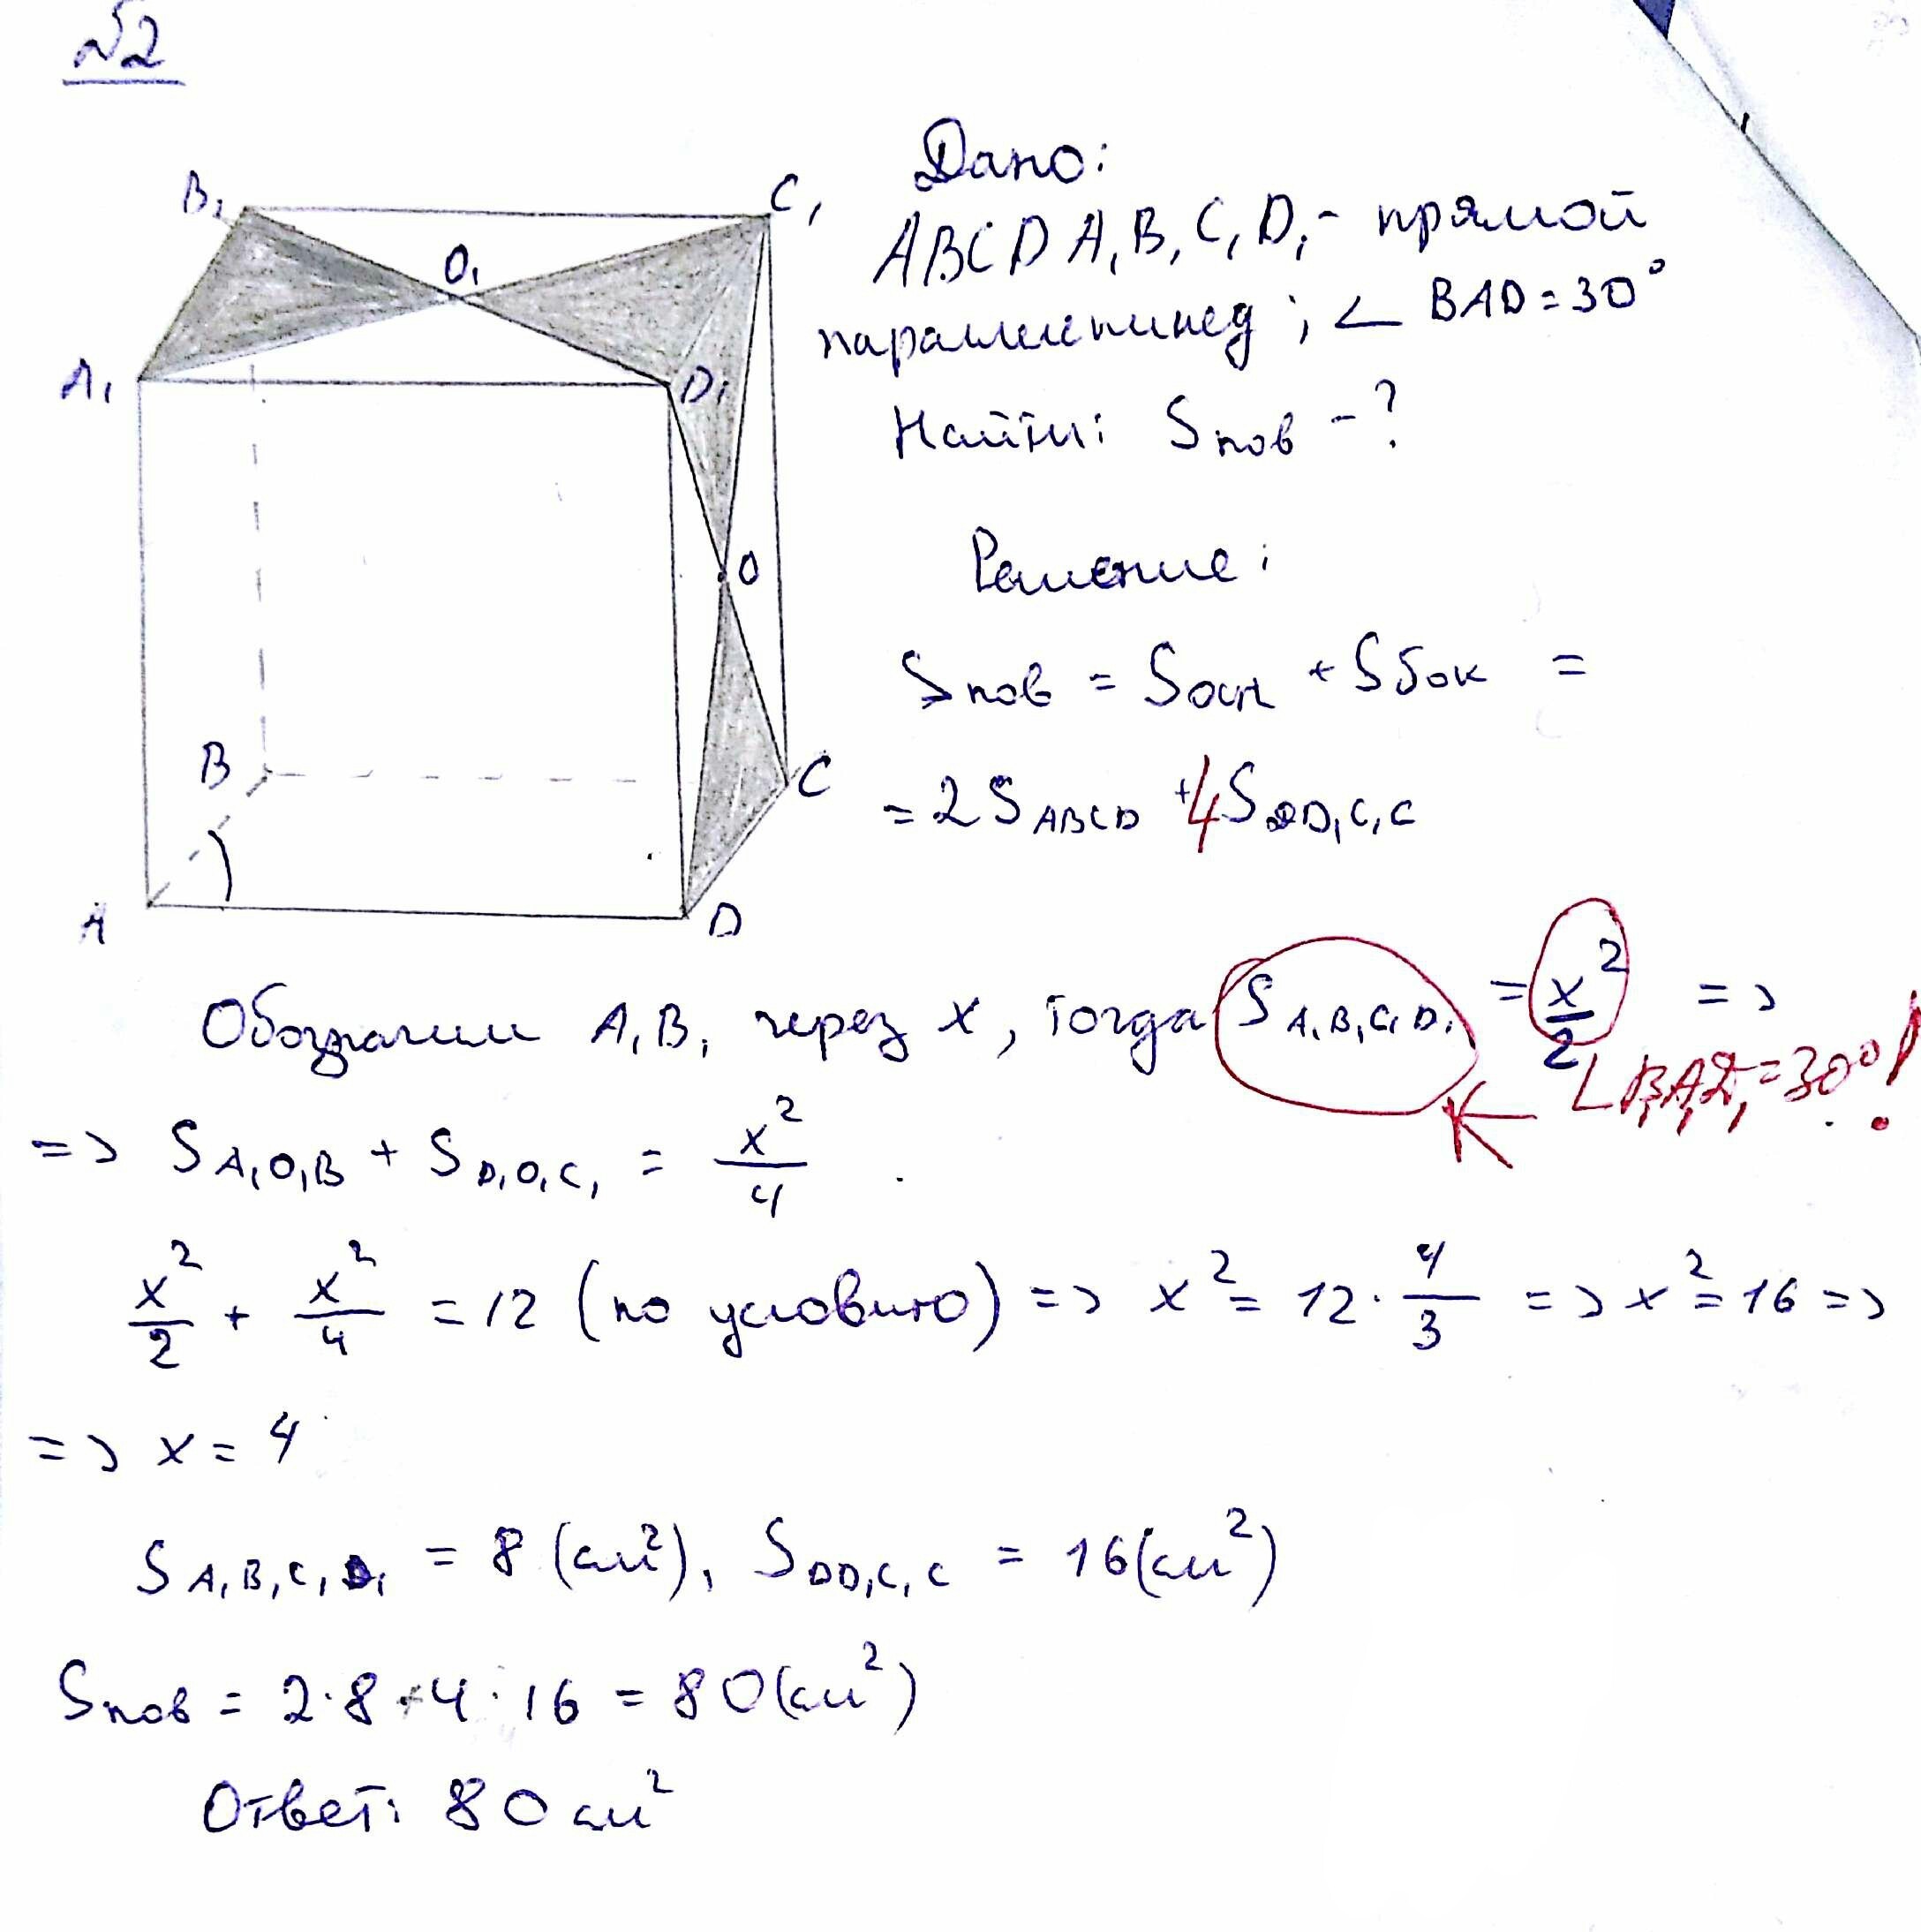 №2
B₁ C₁
O₁
A₁ D₁
O
B C
A D
Дано:
ABCDA₁B₁C₁D₁ - прямой
параллепипед; ∠BAD = 30°
Найти: Sпов - ?
Решение:
Sпов = Sосн + Sбок =
= 2S ABCD + 4S DD₁C₁C
Обозначим A₁B₁ через x, тогда S A₁B₁C₁D₁ = x²/2 =>
∠B₁A₁D₁ = 30°!
=> S A₁O₁B + S D₁O₁C₁ = x²/4
x²/2 + x²/4 = 12 (по условию) => x² = 12 · 4/3 => x² = 16 =>
=> x = 4
S A₁B₁C₁D₁ = 8 (см²), S DD₁C₁C = 16 (см²)
Sпов = 2·8 + 4·16 = 80 (см²)
Ответ: 80 см²